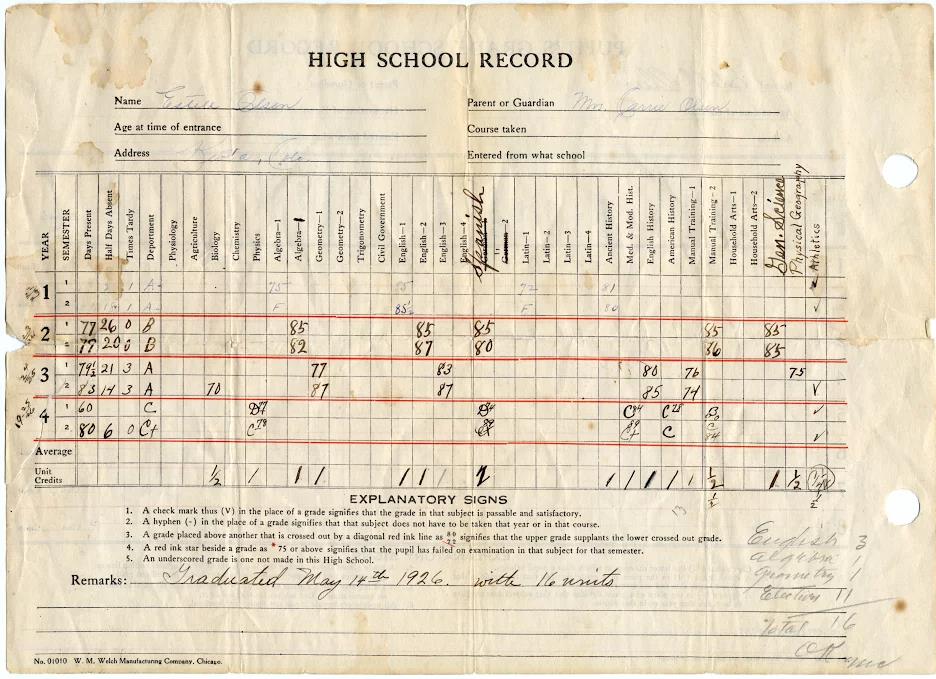 HIGH SCHOOL RECORD
Name Estell Olsen Parent or Guardian Mrs. Carrie Olsen
Age at time of entrance Course taken
Address Colo Entered from what school
YEAR SEMESTER Days Present Half Days Absent Times Tardy Department Physiology Agriculture Biology Chemistry Physics Algebra—1 Algebra—1 Geometry—1 Geometry—2 Trigonometry Civil Government English—1 English—2 English—3 English—4 Spanish —2 Latin—1 Latin—2 Latin—3 Latin—4 Ancient History Med. & Mod. Hist. English History American History Manual Training—1 Manual Training—2 Household Arts—1 Household Arts—2 Gen. Science Physical Geography Athletics
1 1 2 1 A- 75 85 72 81
2 1 A- F 85½ F 80 V
2 1 77 26 0 B 85 85 85 85 85
2 77 20 0 B 82 87 80 86 85
3 1 79½ 21 3 A 77 83 80 76 75
2 83 14 3 A 70 87 87 85 74 V
4 1 60 C D77 D74 C84 C78 B V
2 80 6 0 C+ C79 C+ C C 84 V
Average
Unit Credits ½ 1 1 1 1 1 1 2 1 1 1 1 1 ½ 1 ½
½ ½
EXPLANATORY SIGNS
1. A check mark thus (V) in the place of a grade signifies that the grade in that subject is passable and satisfactory.
2. A hyphen (-) in the place of a grade signifies that that subject does not have to be taken that year or in that course.
3. A grade placed above another that is crossed out by a diagonal red ink line as 80 72 signifies that the upper grade supplants the lower crossed out grade.
4. A red ink star beside a grade as *75 or above signifies that the pupil has failed on examination in that subject for that semester.
5. An underscored grade is one not made in this High School.
Remarks: Graduated May 14th 1926. with 16 units
English 3
Algebra 1
Geometry 1
Election 11
Total 16
OK
No. 01010 W. M. Welch Manufacturing Company, Chicago.